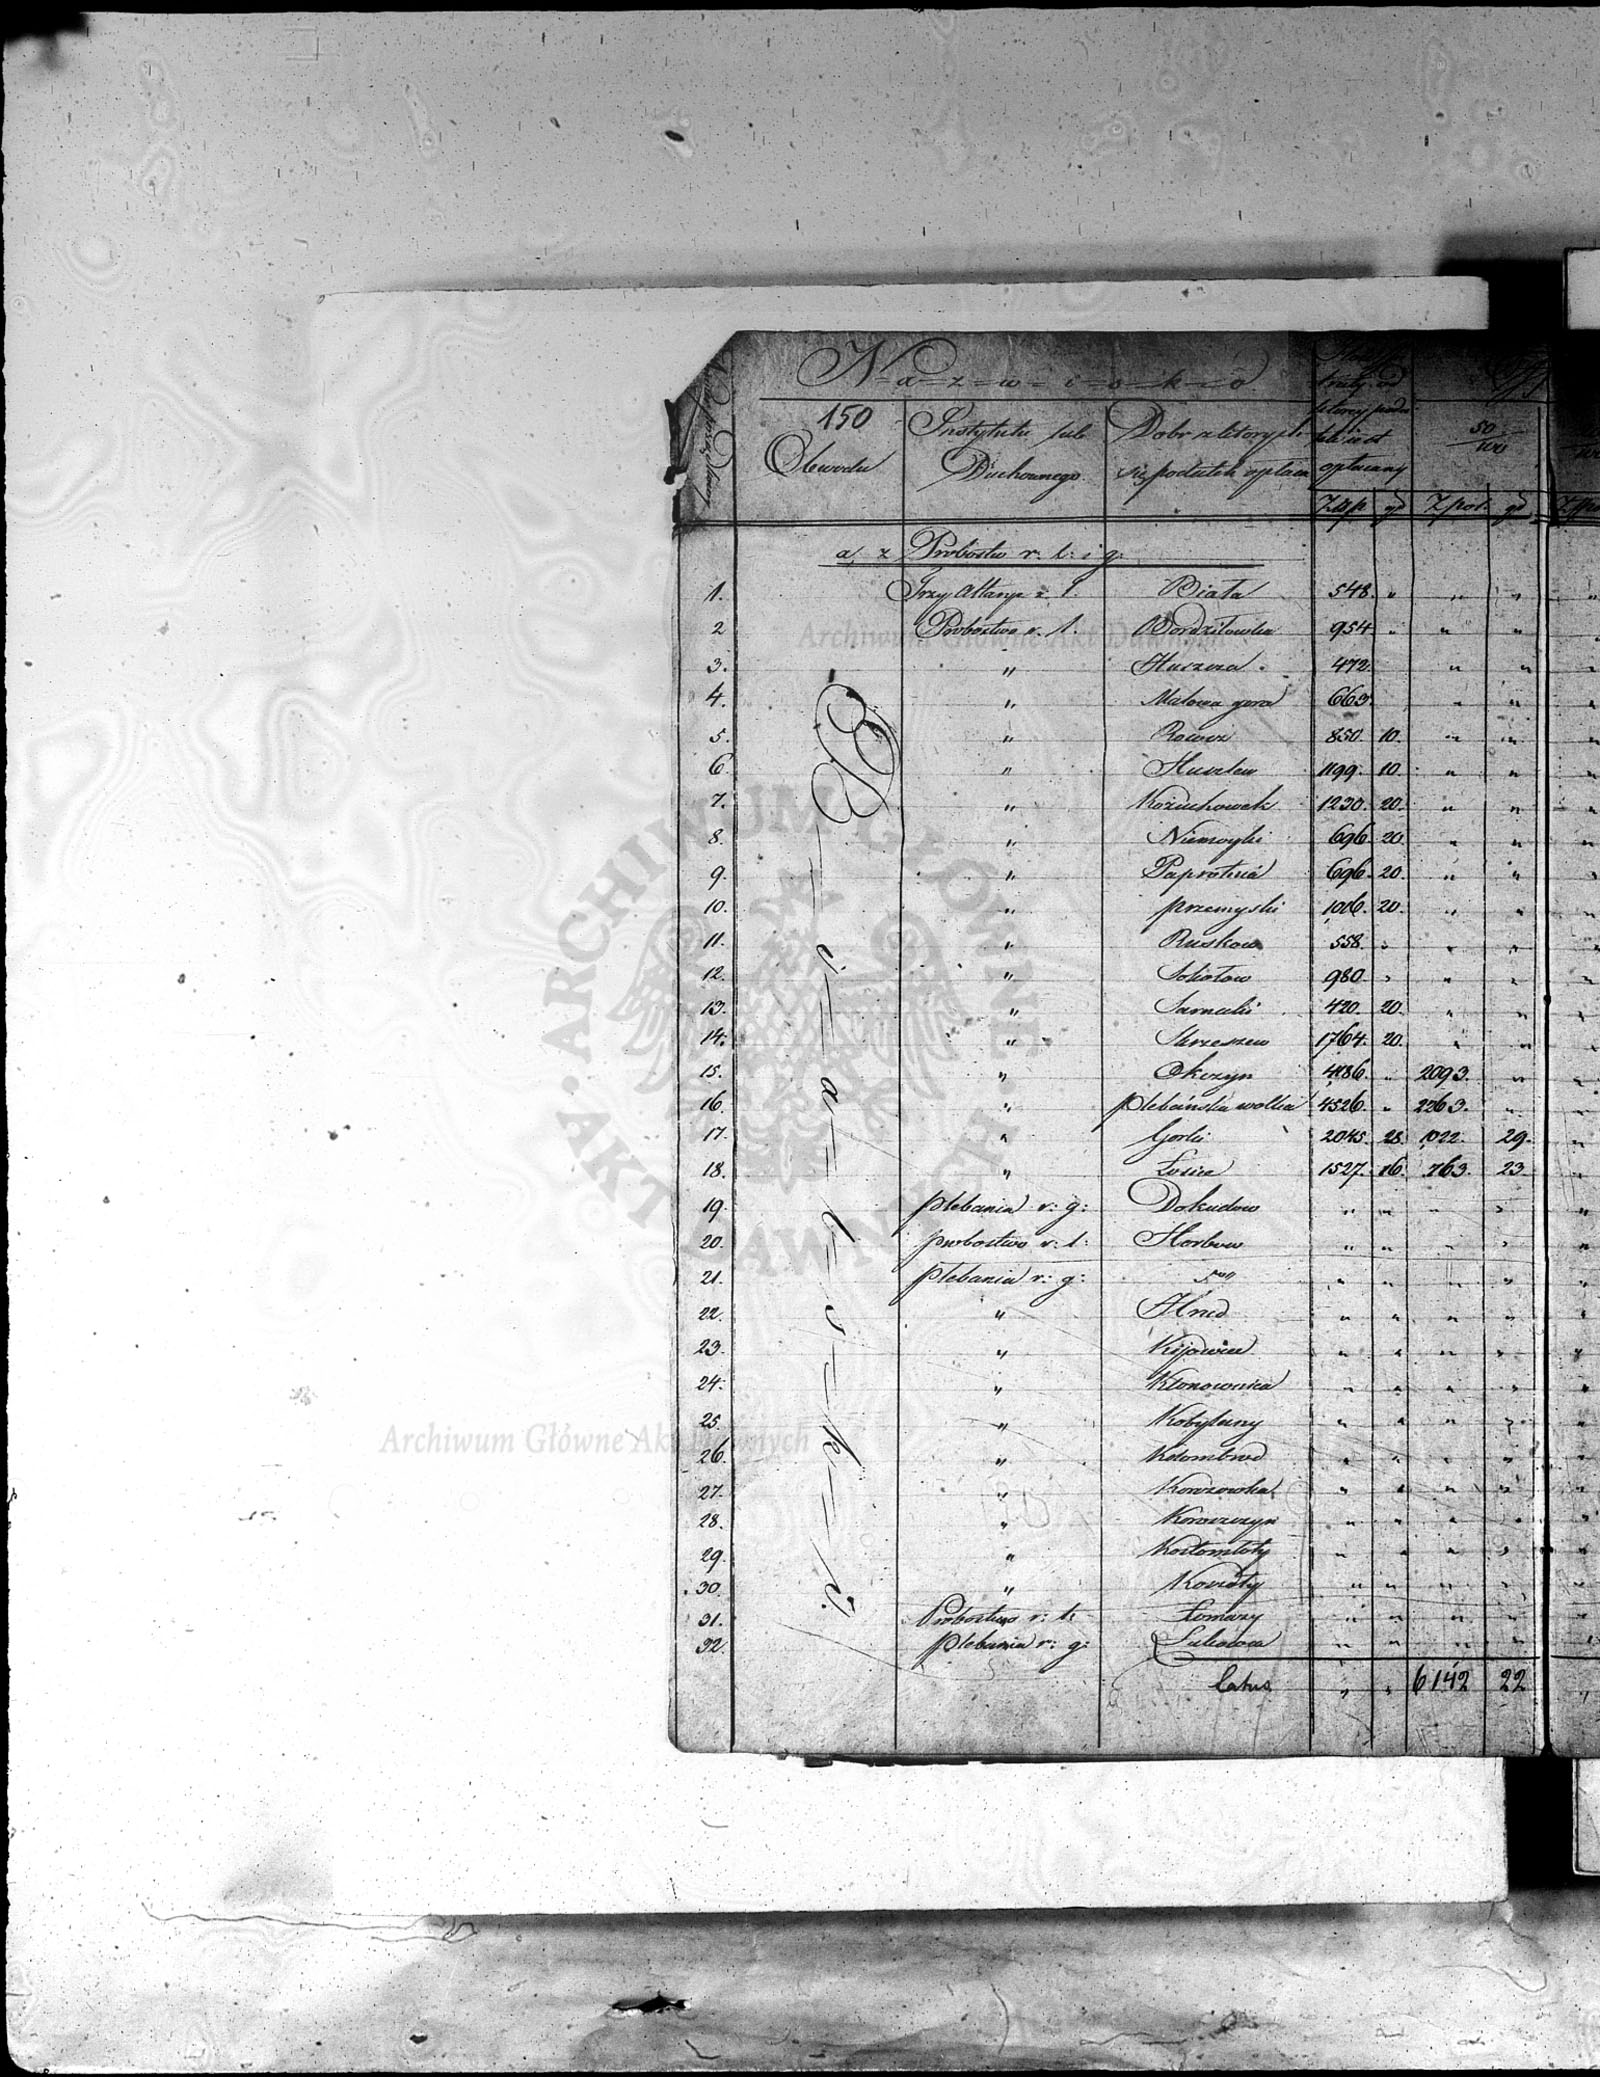 N=a=z=w=i=s=k=o
150
Obwodu
Instytutu lub
Duchownego
Dobr z ktorych
się podatek opłaca
opłacany
50
100
Złp. gr Zpol. gr
a, z Probostw r: l: i g:
1. Trzy Altarye r. l. Biała 548. " " "
2 Probostwo r. l. Bordziłowka 954 " " "
3. " Huszcza. 472. " "
4. " Malowa gora 663. " "
5. " 850. 10. " "
6 " Huszlew 1199. 10. " "
7. " Kożuchowek 1230. 20. " "
8. " Niemoyki 696. 20. " "
9. " Paprotnia 696. 20. " "
10. " Przemyski 1006. 20. " "
11. " Ruskow 558. " " "
12. " Sokołow 980. " " "
13. " Sarnaki 420. 20. " "
14. " Skrzeszew 1764. 20. " "
15. " Okczyn 4186. " 2093. "
16. " Plebańska wolka 4526. " 2263. "
17. " Gorki 2045. 28. 1022. 29.
18. " Łosice 1527. 16. 763. 23.
19. Plebania r: g: Dokudow " " " "
20. Probostwo r: l: Horbow " " " "
21. Plebania r: g: " " " "
22. " Hrud " " " "
23. " Kijowiec " " " "
24. " Klonownica " " " "
25. " Kobylany " " " "
26. " Kolembrod " " " "
27. " Korczowka " " " "
28. " Koroszczyn " " " "
29. " Kostomłoty " " " "
30. " Koszoły " " " "
31. Probostwo r: l: Łomazy " " " "
32. Plebania r: g: " " " "
Latus " " 6142 22
B—i—a—l—s—k—i
Archiwum Główne Akt Dawnych
ARCHIWUM GŁÓWNE · AKT DAWNYCH ·
Archiwum Główne Akt Dawnych